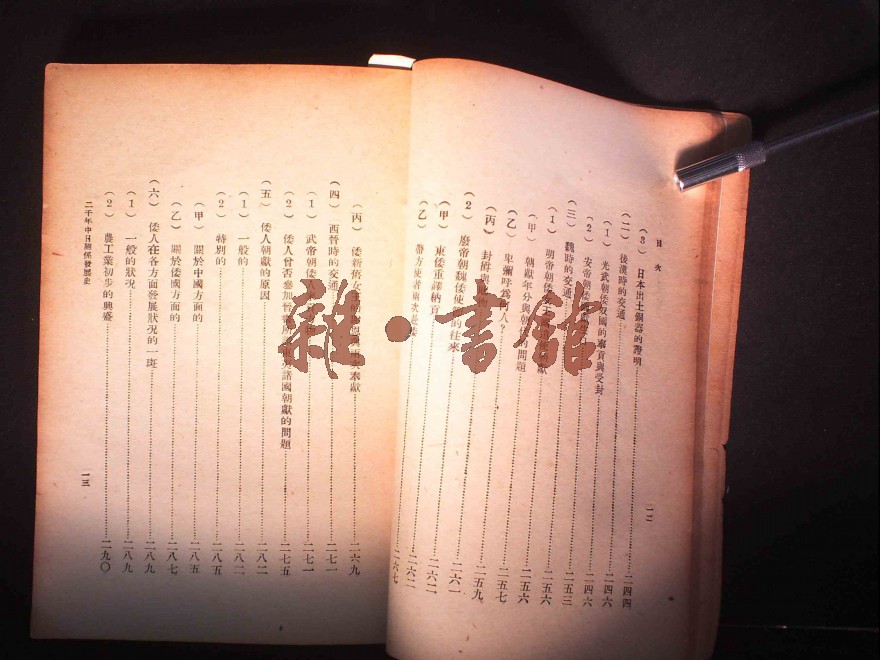 目次
(3) 日本出土銅器的證明……二四四
(二) 後漢時的交通……二四六
(1) 光武朝倭奴國的奉貢與受封……二四六
(2) 安帝朝倭
(三) 魏時的交通……二五三
(1) 明帝朝倭女 獻……二五六
(甲) 朝獻年分與朝 的問題……二五六
(乙) 卑彌呼為何人？……二五七
(丙) 封 物……二五九
(2) 廢帝朝魏倭使 的往來……二六一
(甲) 東倭重譯納貢……二六二
(乙) 帶方使者 ……二六二
一二
(丙) 倭新舊女王 奉獻……二六九
(四) 西晉時的交通……二七一
(1) 武帝朝倭人 ……二七一
(2) 倭人曾否參加晉 諸國朝獻的問題……二七五
(五) 倭人朝獻的原因……二八二
(1) 一般的……二八二
(2) 特別的……二八五
(甲) 關於中國方面的……二八五
(乙) 關於倭國方面的……二八七
(六) 倭人在各方面發展狀況的一斑……二八九
(1) 一般的狀況……二八九
(2) 農工業初步的興盛……二九〇
二千年中日關係發展史
一三
雜·書館